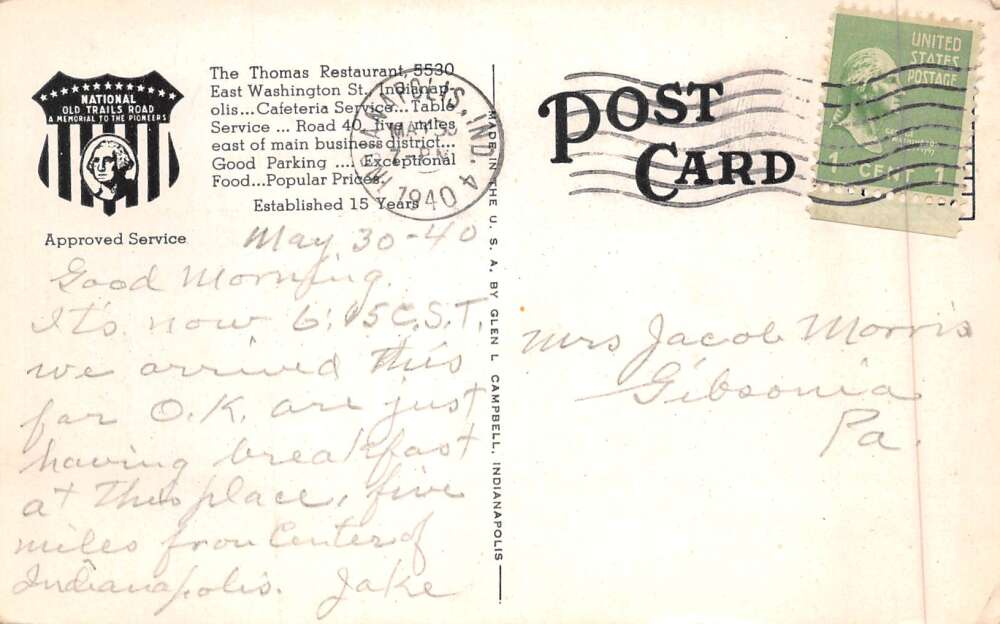 NATIONAL
OLD TRAILS ROAD
A MEMORIAL TO THE PIONEERS
Approved Service
The Thomas Restaurant, 5530
East Washington St., Indianap-
olis...Cafeteria Service...Table
Service ... Road 40, five miles
east of main business district...
Good Parking .... Exceptional
Food...Popular Prices.
Established 15 Years
INDIANAPOLIS, IND. 4
1940
May 30-40
Good Morning.
It's now 6:15 C.S.T.
we arrived this
far O.K. are just
having breakfast
at this place, five
miles from Center of
Indianapolis. Jake
MADE IN THE U. S. A. BY GLEN L CAMPBELL, INDIANAPOLIS
POST
CARD
UNITED
STATES
POSTAGE
1 CENT 1
Mrs Jacob Morris
Gibsonia
Pa.